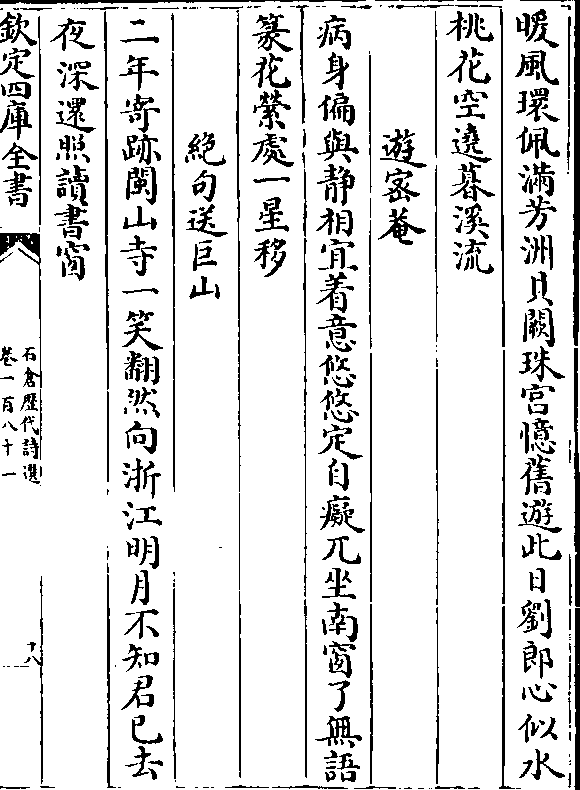 暖風環佩滿芳洲貝闕珠宫憶舊遊此日劉郎心似水
桃花空遶暮溪流
遊宻菴
病身偏與静相宜着意悠悠定自癡兀坐南窗了無語
篆花縈處一星移
絶句送巨山
二年寄跡閩山寺一笑翻然向浙江明月不知君已去
夜深還照讀書窗
欽定四庫全書
石倉歴代詩選
卷一百八十一
十八